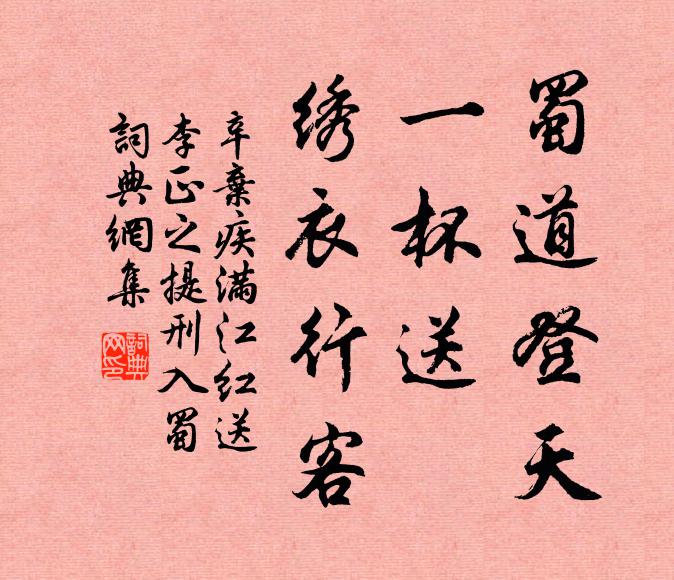 蜀道登天
一杯送
绣衣行客
辛棄疾滿江红送
李正之提刑入蜀
詞典網集
詞典网印